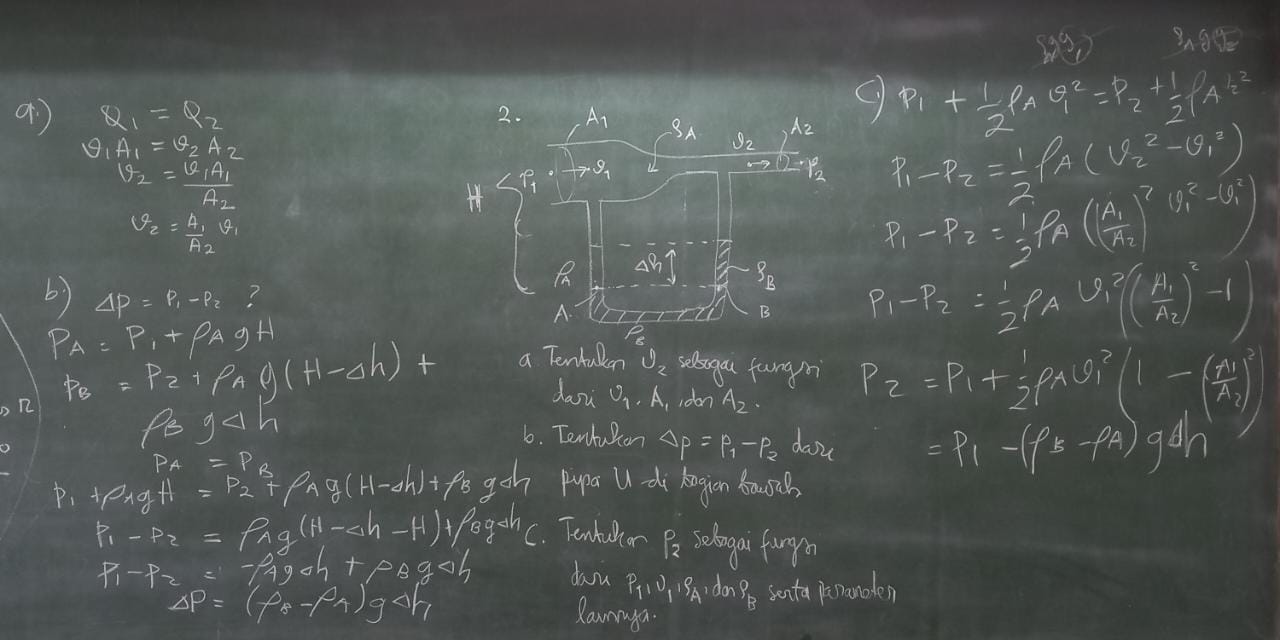 a.)
Q₁ = Q₂
v₁A₁ = v₂A₂
v₂ = v₁A₁/A₂
v₂ = A₁/A₂ v₁
b) Δp = P₁ - P₂ ?
P_A = P₁ + ρ_A g H
P_B = P₂ + ρ_A g (H - Δh) +
ρ_B g Δh
P_A = P_B
P₁ + ρ_A g H = P₂ + ρ_A g (H - Δh) + ρ_B g Δh
P₁ - P₂ = ρ_A g (H - Δh - H) + ρ_B g Δh
P₁ - P₂ = -ρ_A g Δh + ρ_B g Δh
ΔP = (ρ_B - ρ_A) g Δh
2.
A₁
ρ_A
v₂
A₂
P₁
v₁
P₂
H
Δh
ρ_A
ρ_B
A
B
ρ_B
a. Tentukan v₂ sebagai fungsi
dari v₁, A₁, dan A₂.
b. Tentukan Δp = P₁ - P₂ dari
pipa U di bagian bawah
c. Tentukan P₂ sebagai fungsi
dari P₁, v₁, ρ_A, dan ρ_B serta parameter
lainnya.
c) P₁ + ½ ρ_A v₁² = P₂ + ½ ρ_A v₂²
P₁ - P₂ = ½ ρ_A (v₂² - v₁²)
P₁ - P₂ = ½ ρ_A ((A₁/A₂)² v₁² - v₁²)
P₁ - P₂ = ½ ρ_A v₁² ((A₁/A₂)² - 1)
P₂ = P₁ + ½ ρ_A v₁² (1 - (A₁/A₂)²)
= P₁ - (ρ_B - ρ_A) g Δh